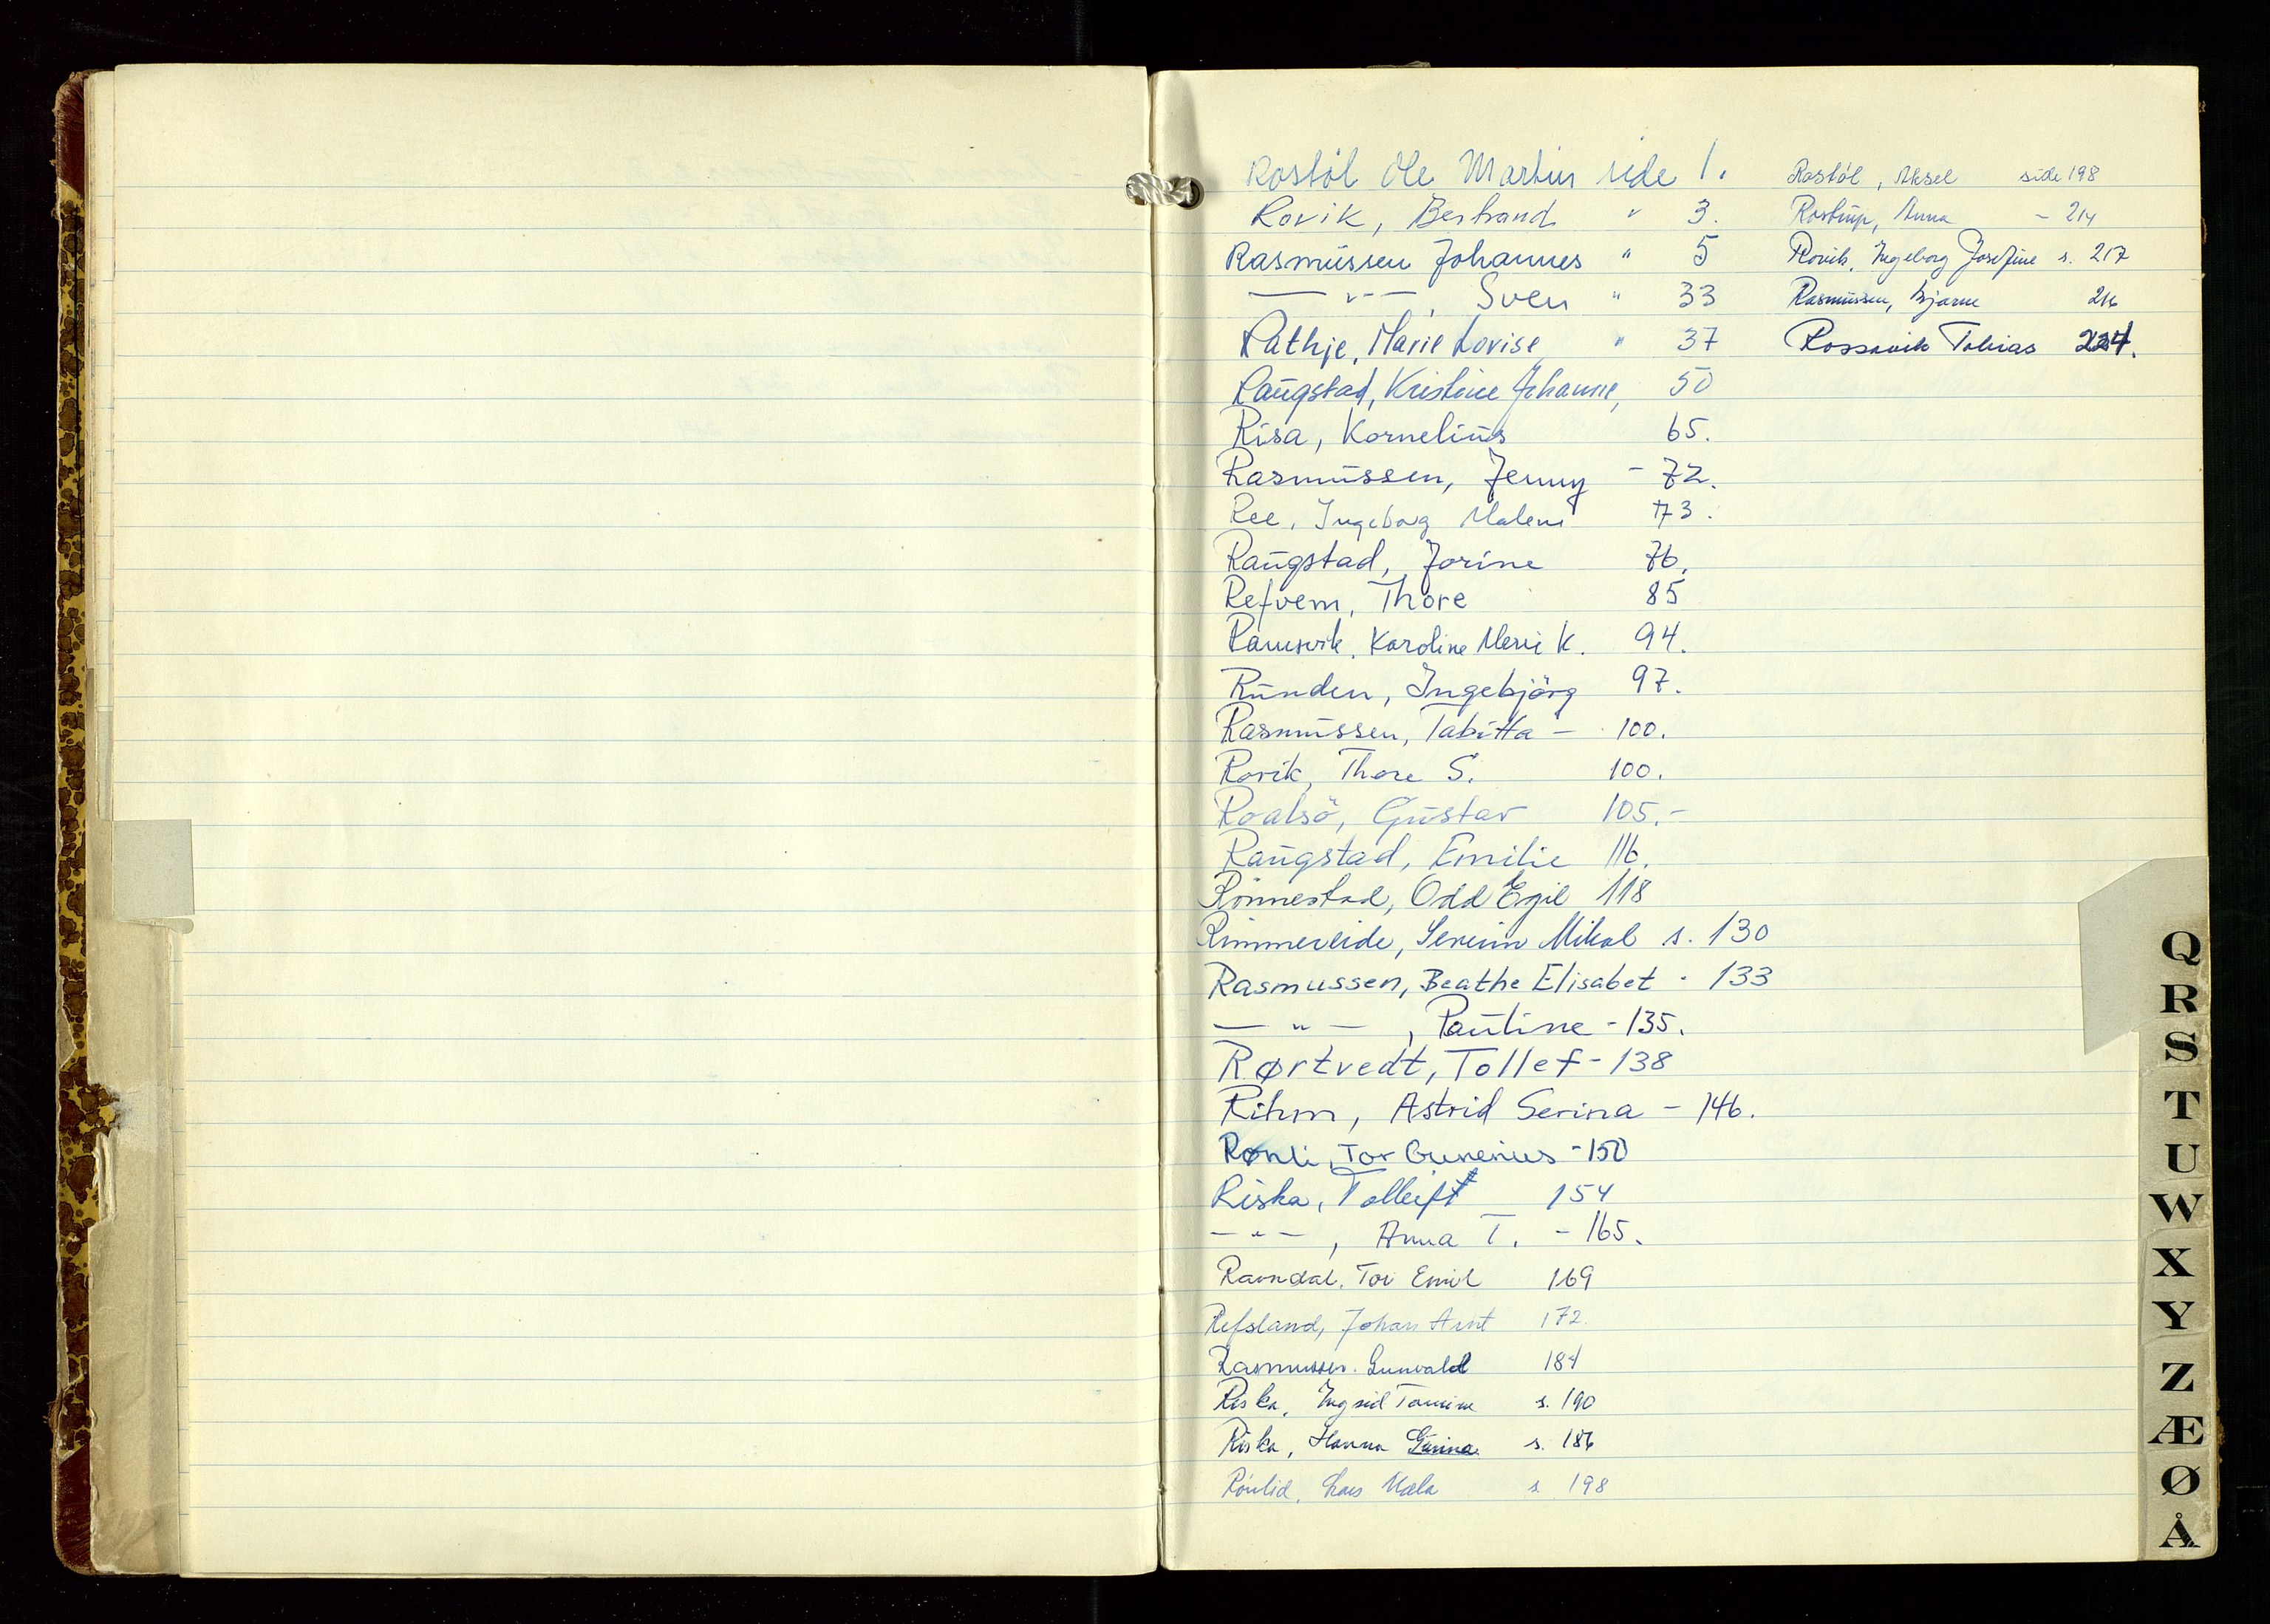 Rostöl Ole Martin side 1.
Rovik, Bertrand " 3.
Rasmussen Johannes " 5
— " — , Sven " 33
Rathje, Marie Lovise " 37
Raugstad, Kristine Johanne, 50
Risa, Kornelius 65.
Rasmussen, Jenny - 72.
Ree, Ingeborg Maleni 73.
Raugstad, Jorine 76.
Refvem, Thore 85
Ramsvik, Karoline Marie K. 94.
Runden, Ingebjörg 97.
Rasmussen, Tabitta - 100.
Rovik, Thore S. 100.
Roalsö, Gustav 105.-
Raugstad, Emilie 116.
Rönnestad, Odd Egil 118
Rimmereide, Severin Mikal s. 130
Rasmussen, Beathe Elisabet - 133
— " — , Pauline - 135.
Rørtvedt, Tollef - 138
Rihm, Astrid Serina - 146.
Rønli, Tor Gunerius - 150
Riska, Tolleif 154
— " — , Anna T. - 165.
Ravndal, Tor Emil 169
Refsland, Johan Arnt 172.
Rasmussen. Gunvald 184
Riska, Ingrid Tomine s. 190
Riska, Hanna s. 186
Rönlid, Lars s 198
Rostöl, Aksel side 198
Rostrup, Anna - 214
Rovik, Ingeborg Josefine s. 217
Rasmussen, Bjarne 216
Rossavik Tobias 224.
Q
R
S
T
U
W
X
Y
Z
Æ
Ø
Å